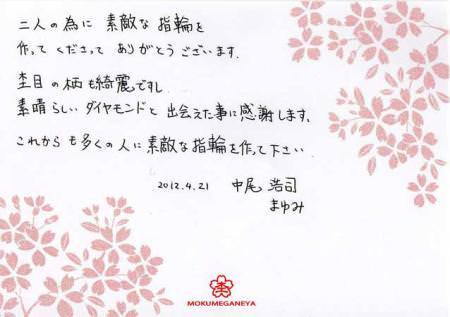 二人の為に 素敵な指輪を
作って くださって ありがとうございます.
杢目の柄も綺麗ですし
素晴らしいダイヤモンドと出会えた事に感謝します.
これからも多くの人に素敵な指輪を作って下さい.
2012.4.21 中尾 浩司
まゆみ
杢
MOKUMEGANEYA